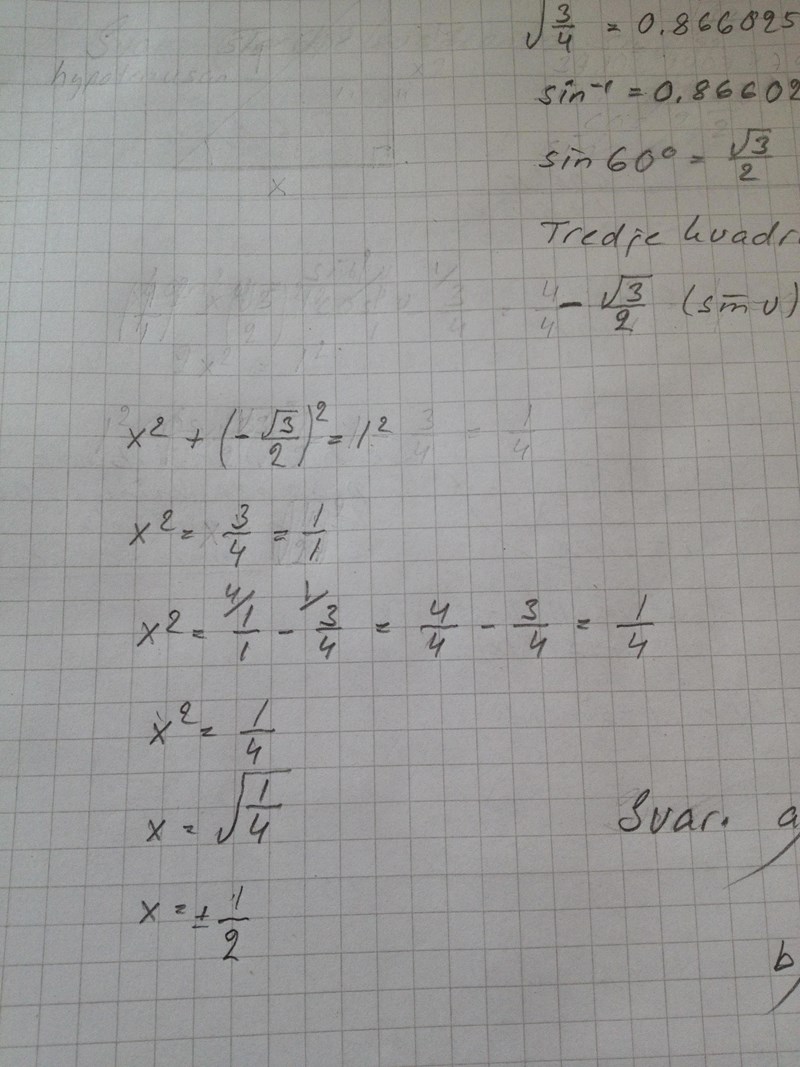 √3/4 = 0.866025
sin⁻¹ = 0.86602
sin 60° = √3/2
Tredje kvadr
- √3/2 (sin v)
x² + (-√3/2)² = 1²
x² = 3/4 = 1/1
x² = 4/1/1 - 1/3/4 = 4/4 - 3/4 = 1/4
x² = 1/4
x = √1/4
x = ± 1/2
Svar. a)
b)
hypotenusan
x